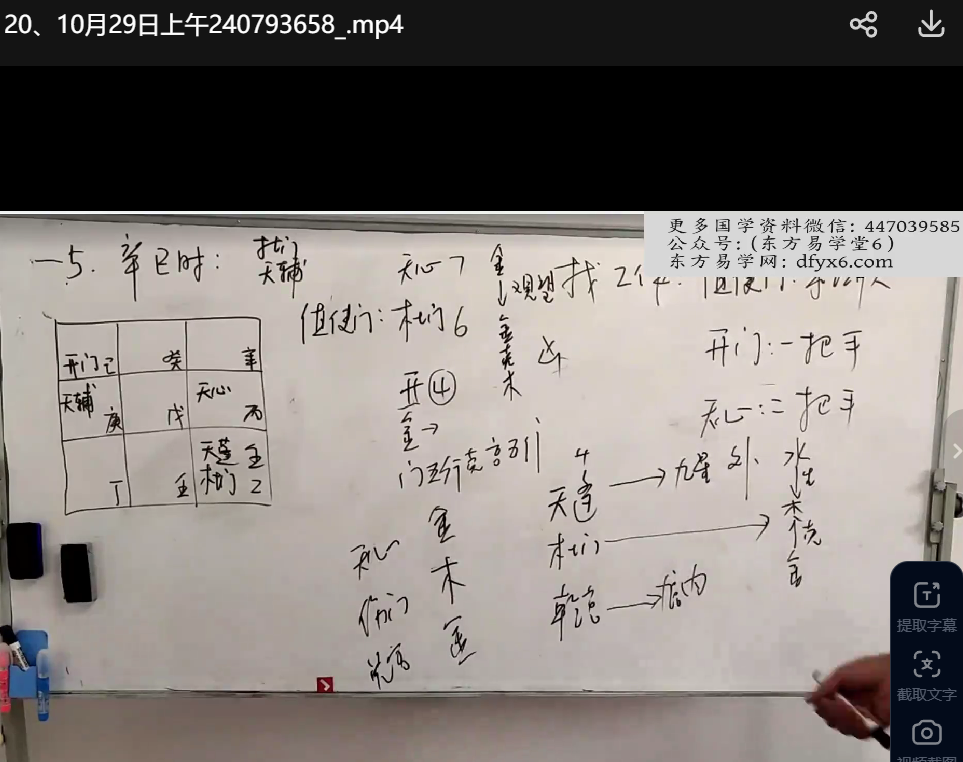 20、10月29日上午240793658_.mp4
更多国学资料微信：447039585
公众号：(东方易学堂6）
东方易学网：dfyx6.com
一5. 辛巳时：
杜门
天辅
天心7
值使门：杜门6
开④
金→
门五行克宫五行
金
↓观望
金克木
凶
找工作：值使门：
开门：一把手
天心：二把手
开门己
癸
辛
天辅
庚
戊
天心
丙
丁
壬
天蓬
杜门
乙
天心 金
伤门 木
兑宫 金
4
天蓬→九星 外
杜门→
乾宫→宫内
水生
↓
木克
金
提取字幕
截取文字
视频截图